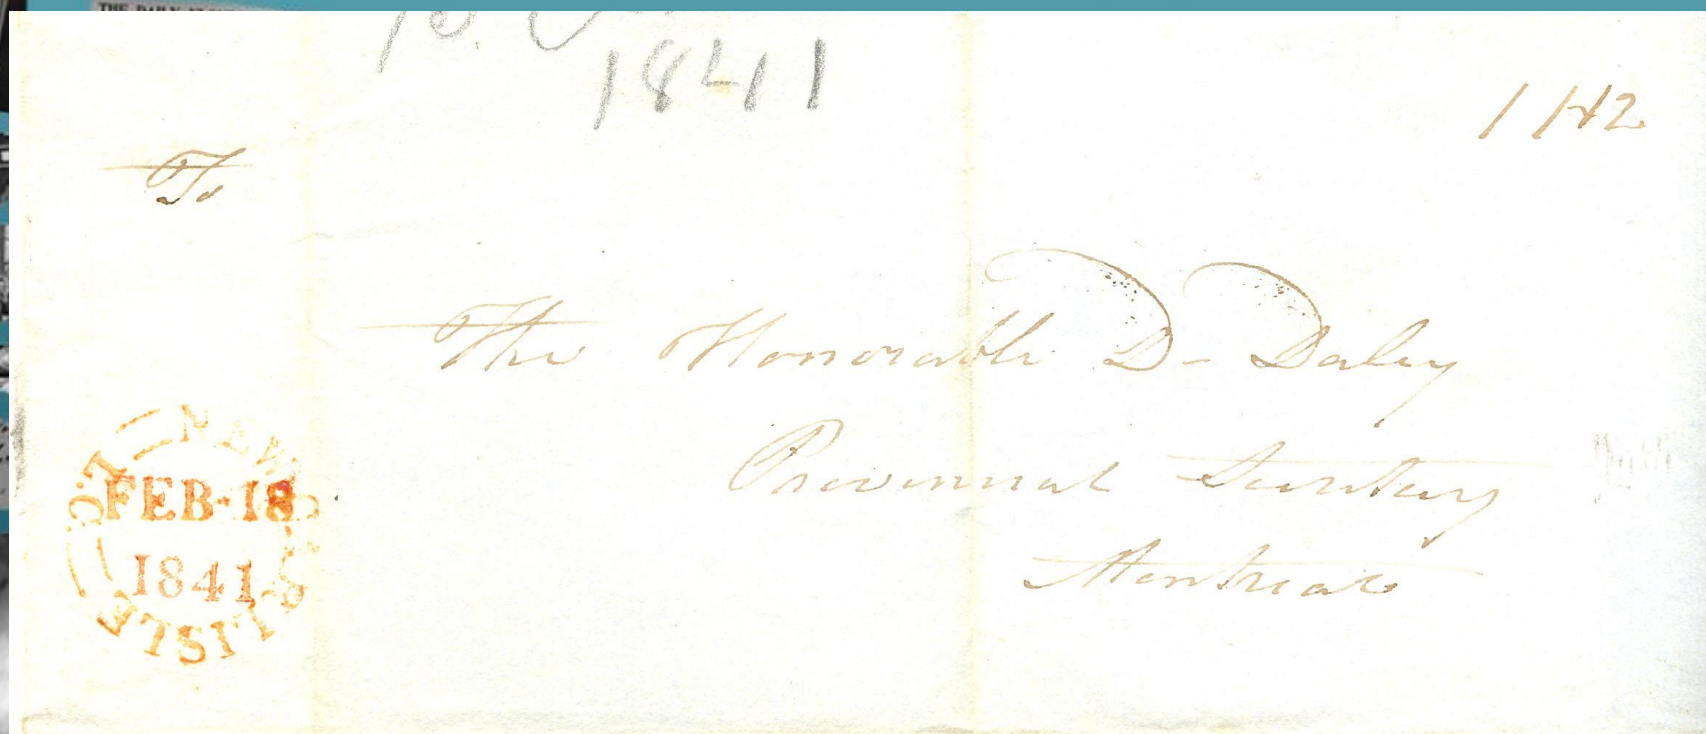 1841
1142
To
The Honorable D- Daley
Provinnial Secretary
Montreal
NEW
LISLE
L.C.
FEB-18
1841